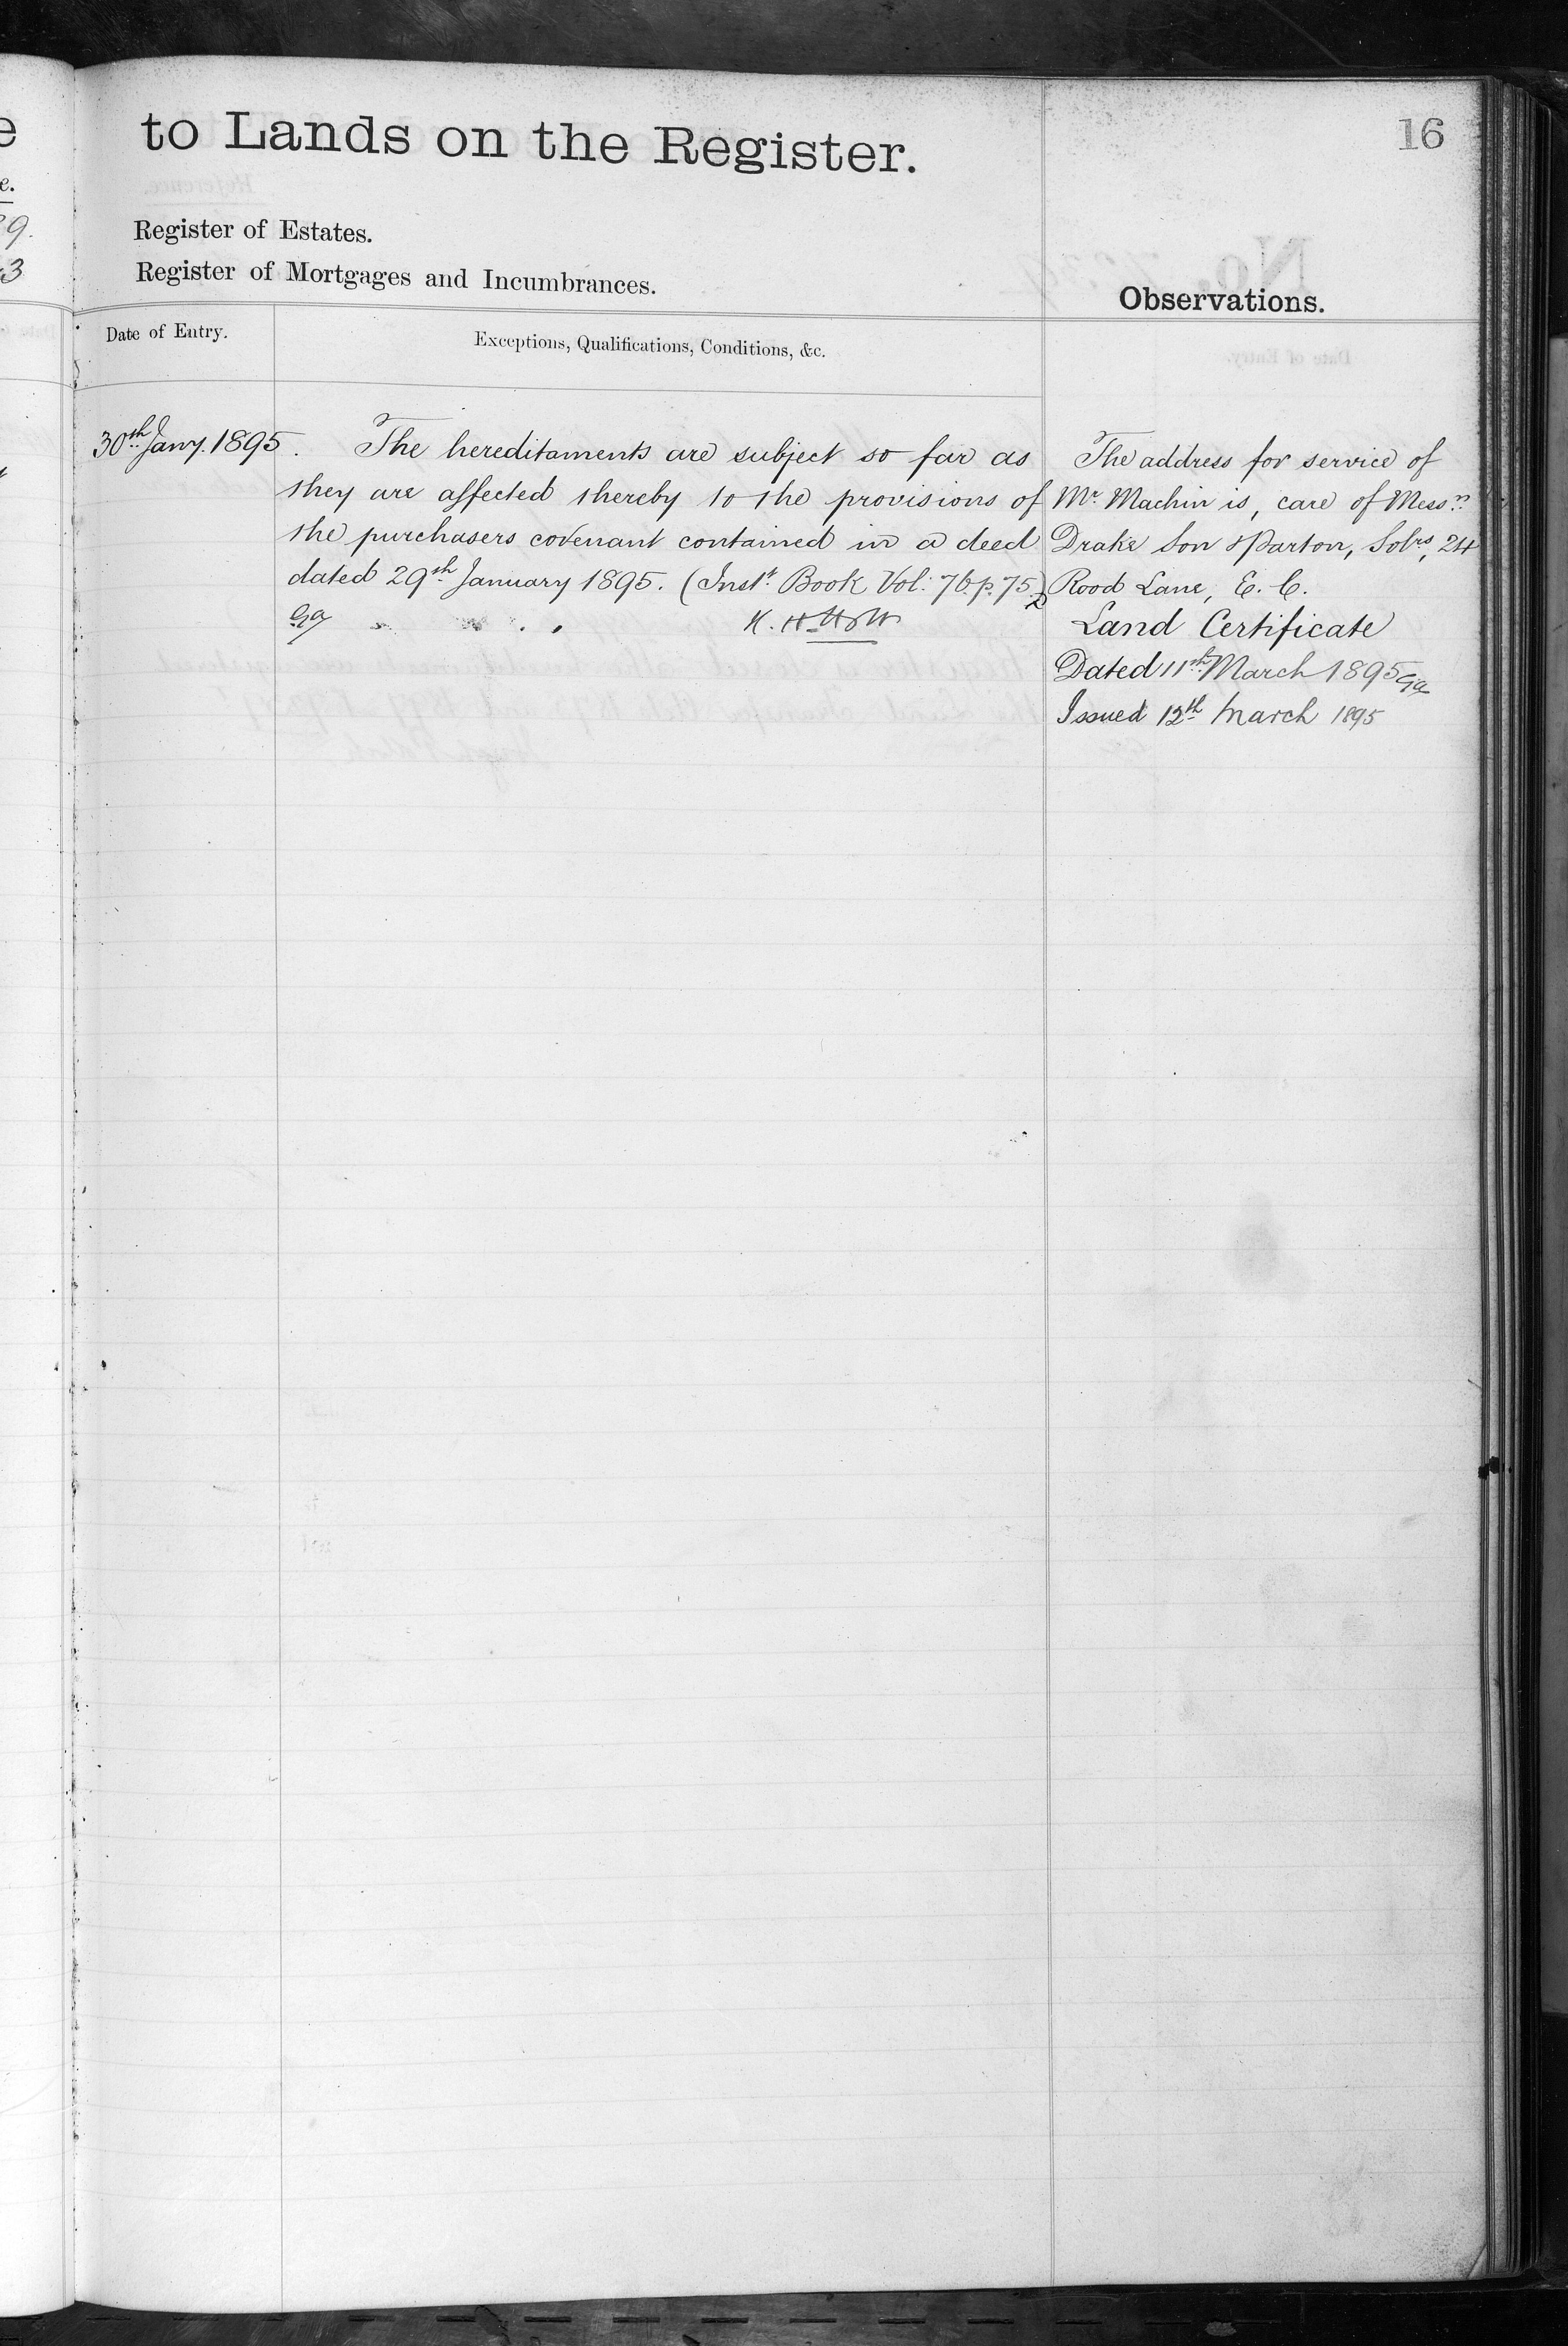 to Lands on the Register.
16
Register of Estates.
Register of Mortgages and Incumbrances.
Observations.
Date of Entry.
Exceptions, Qualifications, Conditions, &c.
30th Jany. 1895.
The hereditaments are subject so far as
they are affected thereby to the provisions of
the purchasers covenant contained in a deed
dated 29th January 1895. (Instt. Book Vol: 76 p. 75)
The address for service of
Mr. Machin is, care of Messrs.
Drake Son & Parton, Solrs, 24
Rood Lane, E. C.
Land Certificate
Dated 11th March 1895
Issued 12th March 1895